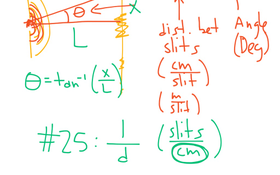 θ
x
L
θ = tan⁻¹ (x/L)
dist. bet
slits
(cm/slit)
(m/slit)
Angle
(Deg)
#25: 1/d (slits/cm)